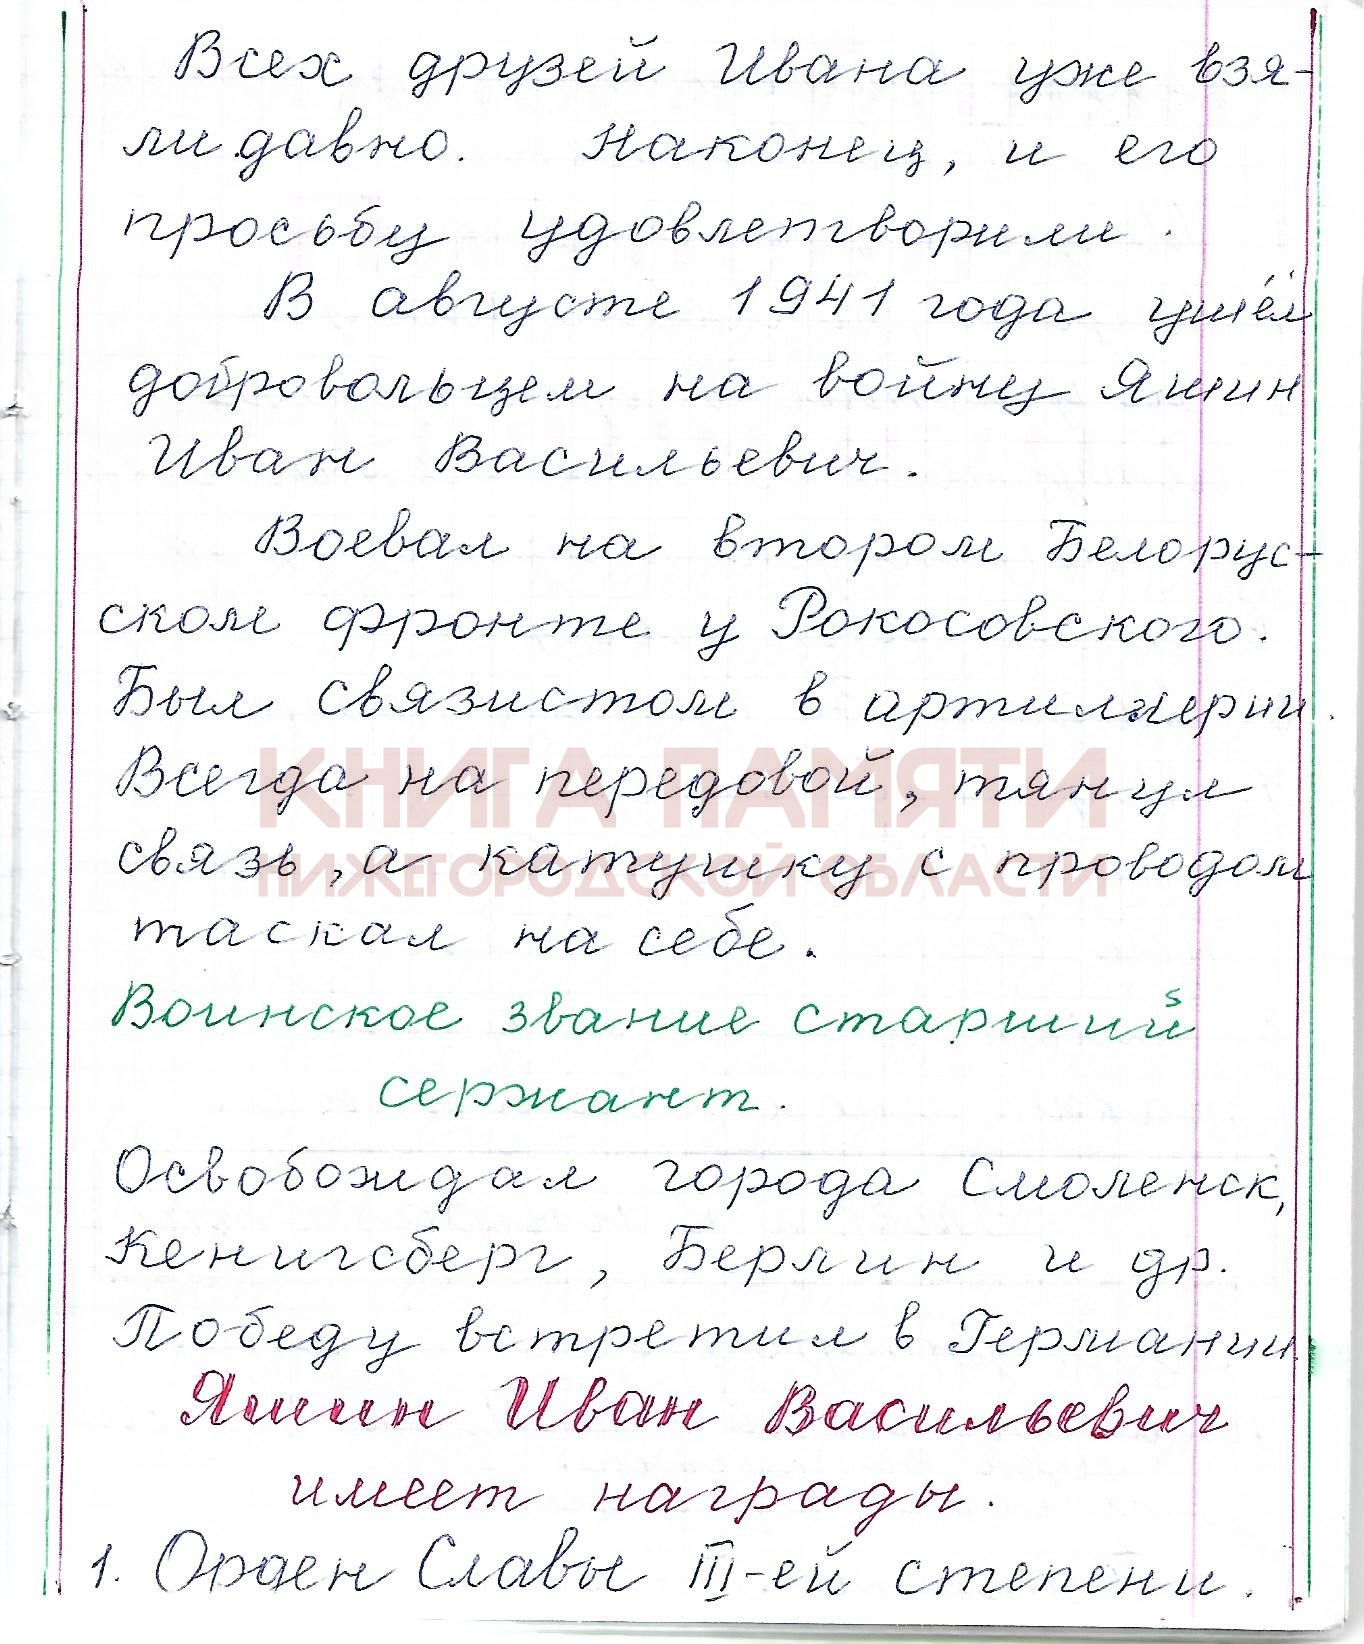 Всех друзей Ивана уже взя-
ли давно. Наконец, и его
просьбу удовлетворили.
В августе 1941 года ушёл
добровольцем на войну Яшин
Иван Васильевич.
Воевал на втором Белорус-
ском фронте у Рокосовского.
Был связистом в артиллерии.
Всегда на передовой, тянул
КНИГА ПАМЯТИ
связь, а катушку с проводом
НИЖЕГОРОДСКОЙ ОБЛАСТИ
таскал на себе.
Воинское звание старший
сержант.
Освобождал города Смоленск,
Кенигсберг, Берлин и др.
Победу встретил в Германии.
Яшин Иван Васильевич
имеет награды.
1. Орден Славы III-ей степени.